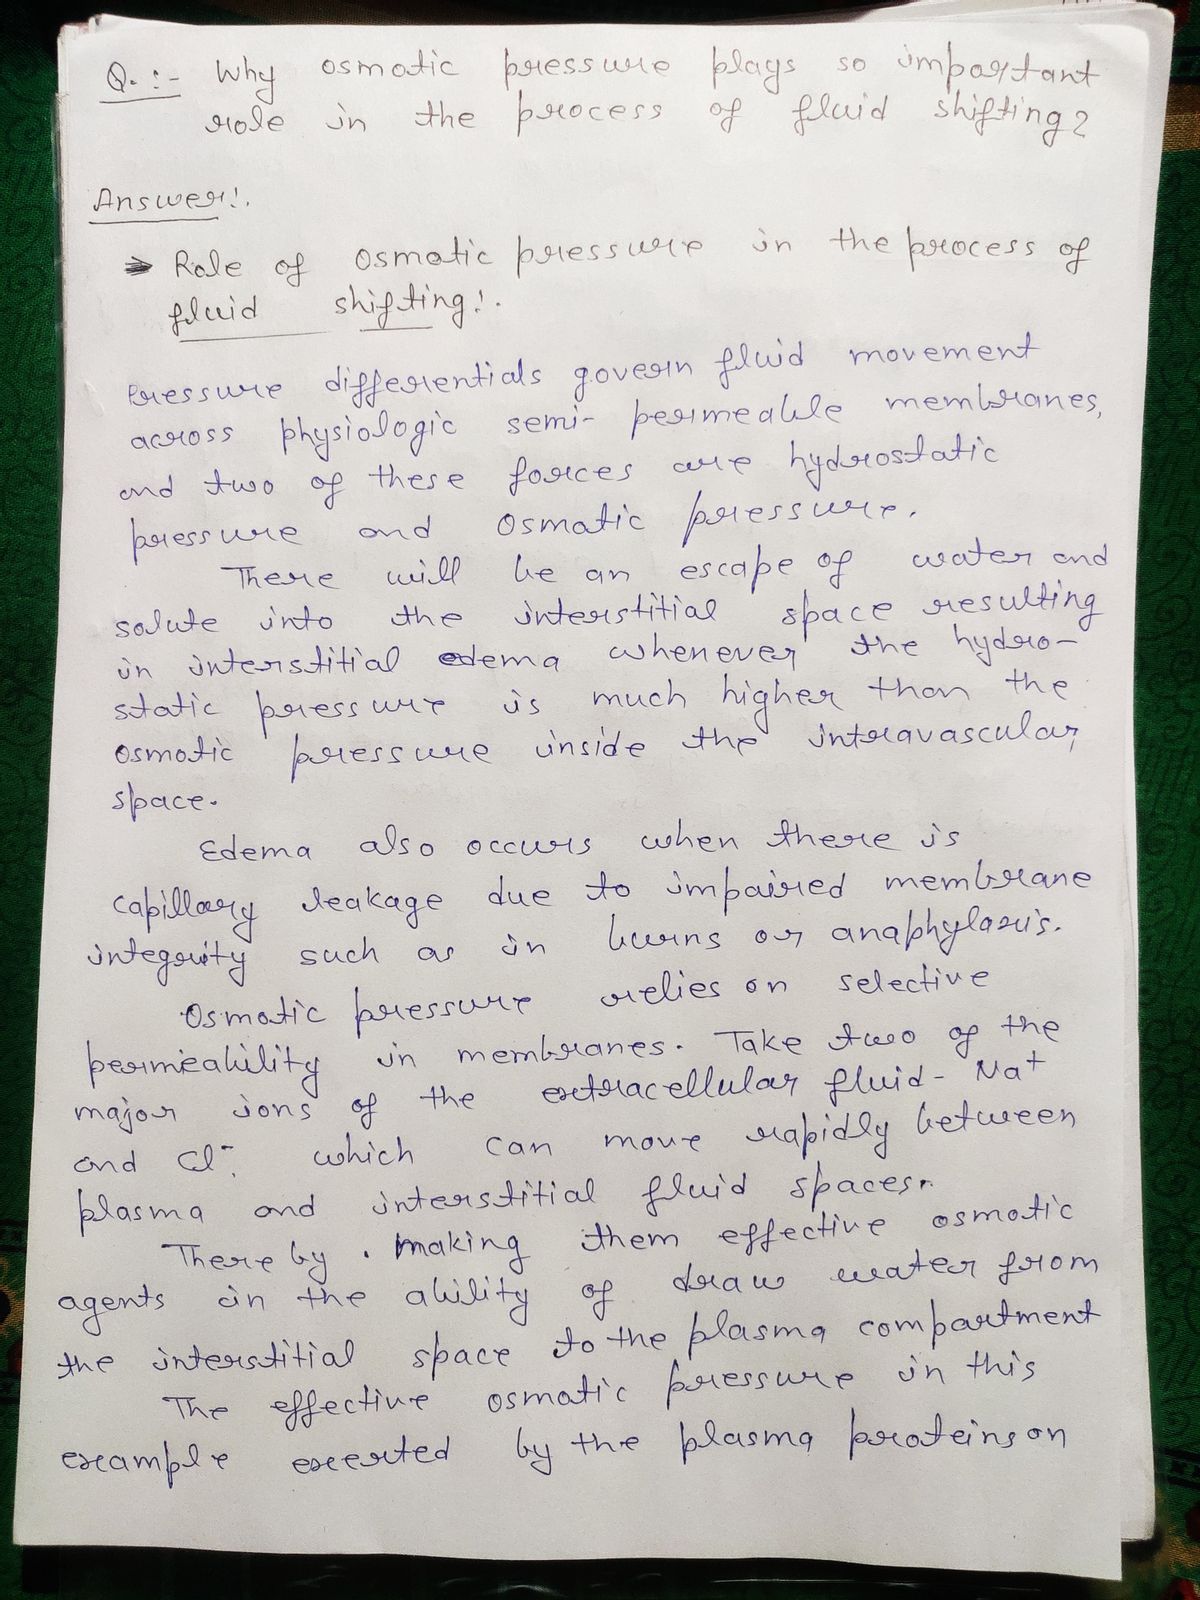 Q. :- Why osmotic pressure plays so important
role in the process of fluid shifting?
Answer:.
→ Role of Osmotic pressure in the process of
fluid shifting:.
Pressure differentials govern fluid movement
across physiologic semi-permeable membranes,
and two of these forces are hydrostatic
pressure and Osmatic pressure.
There will be an escape of water and
solute into the interstitial space resulting
in interstitial edema whenever the hydro-
static pressure is much higher than the
osmotic pressure inside the intravascular
space.
Edema also occurs when there is
capillary leakage due to impaired membrane
integrity such as in burns or anaphylaxis.
Osmotic pressure relies on selective
permeability in membranes. Take two of the
major ions of the extracellular fluid - Na+
and Cl-, which can move rapidly between
plasma and interstitial fluid spaces.
There by . making them effective osmotic
agents in the ability of draw water from
the interstitial space to the plasma compartment
The effective osmotic pressure in this
example exerted by the plasma proteins on